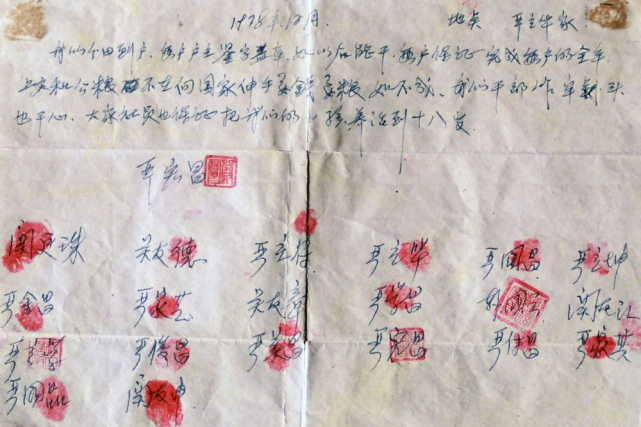 1978年12月 地点 严立华家
我们分田到户，每户户主签字盖章，如以后能干，每户保证完成每户的全年
上交和公粮，不在向国家伸手要钱要粮，如不成，我们干部作牢剎头
也干心，大家社员也保证把我们的小孩养活到十八岁。
严宏昌
关廷珠 关友德 严立符 严立华 严国昌 严立坤
严金昌 严家芝 关友章 严学昌 韩国云 关友江
严立学 严俊昌 严美昌 严宏昌 严付昌 严家其
严国品 关友申